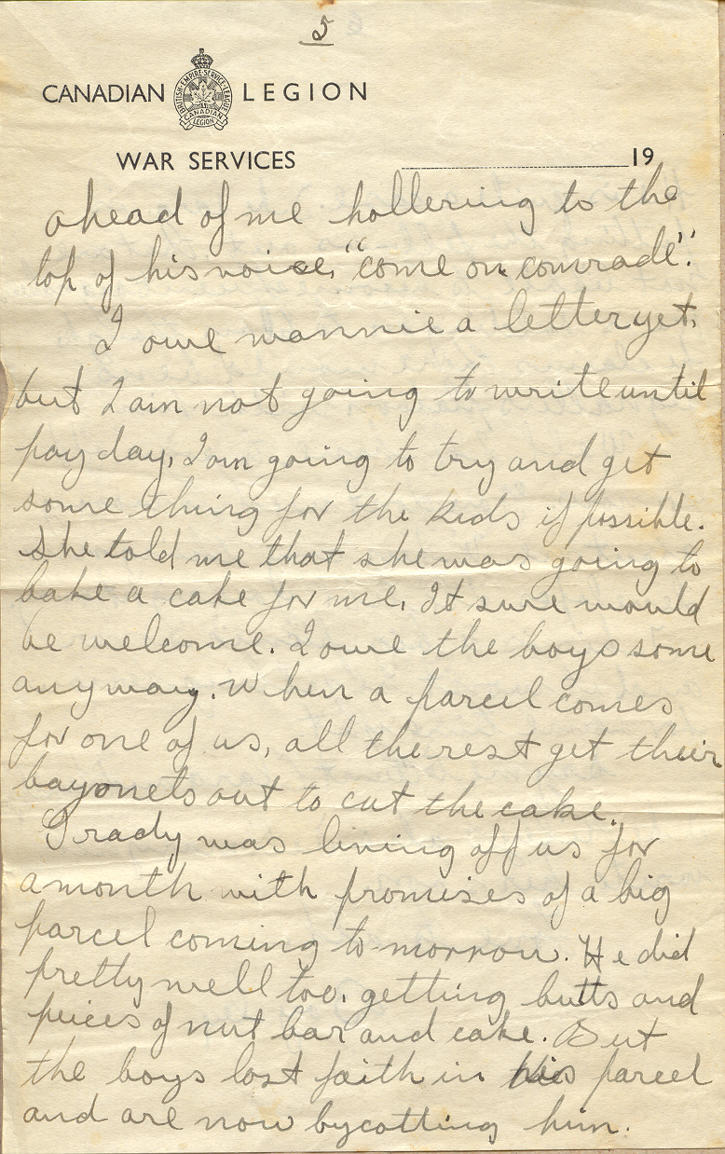 5
CANADIAN LEGION
BRITISH·EMPIRE·SERVICE·LEAGUE
CANADIAN
LEGION
WAR SERVICES 19
ahead of me hollering to the
top of his voice, "come on comrade".
I owe wannie a letter yet,
but I am not going to write until
pay day, I am going to try and get
some thing for the kids if possible.
She told me that she was going to
bake a cake for me. It sure would
be welcome. I owe the boys some
anyway. When a parcel comes
for one of us, all the rest get their
bayonets out to cut the cake.
Grady was living off us for
a month with promises of a big
parcel coming to-morrow. He did
pretty well too, getting butts and
peices of nut bar and cake. But
the boys lost faith in his parcel
and are now bycotting him.